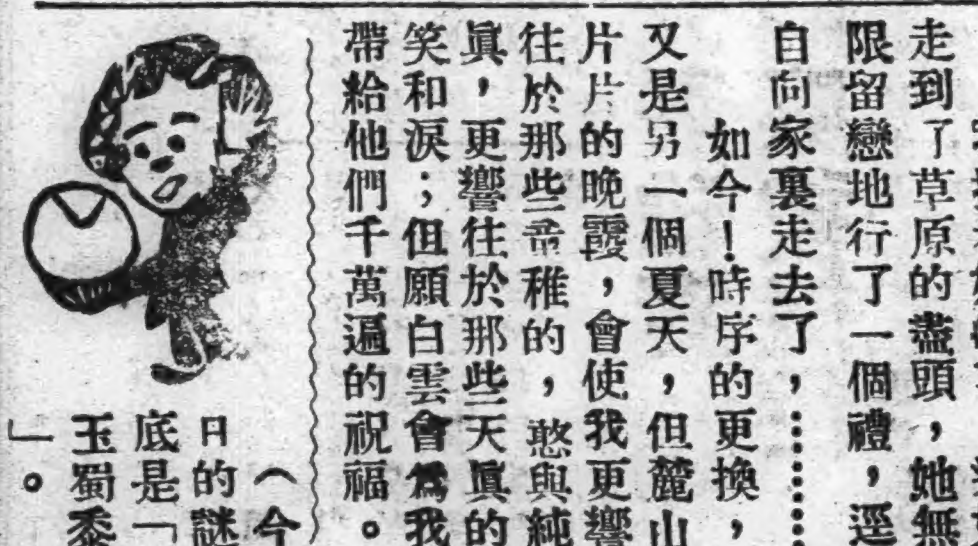 走到了草原的盡頭，她無
限留戀地行了一個禮，逕
自向家裏走去了，……
如今！時序的更換，
又是另一個夏天，但麓山
片片的晚霞，會使我更響
往於那些稚的，憨與純
眞，更響往於那些天眞的
笑和淚；但願白雲會爲我
帶給他們千萬遍的祝福。
（今
日的謎
底是「
玉蜀黍
」。